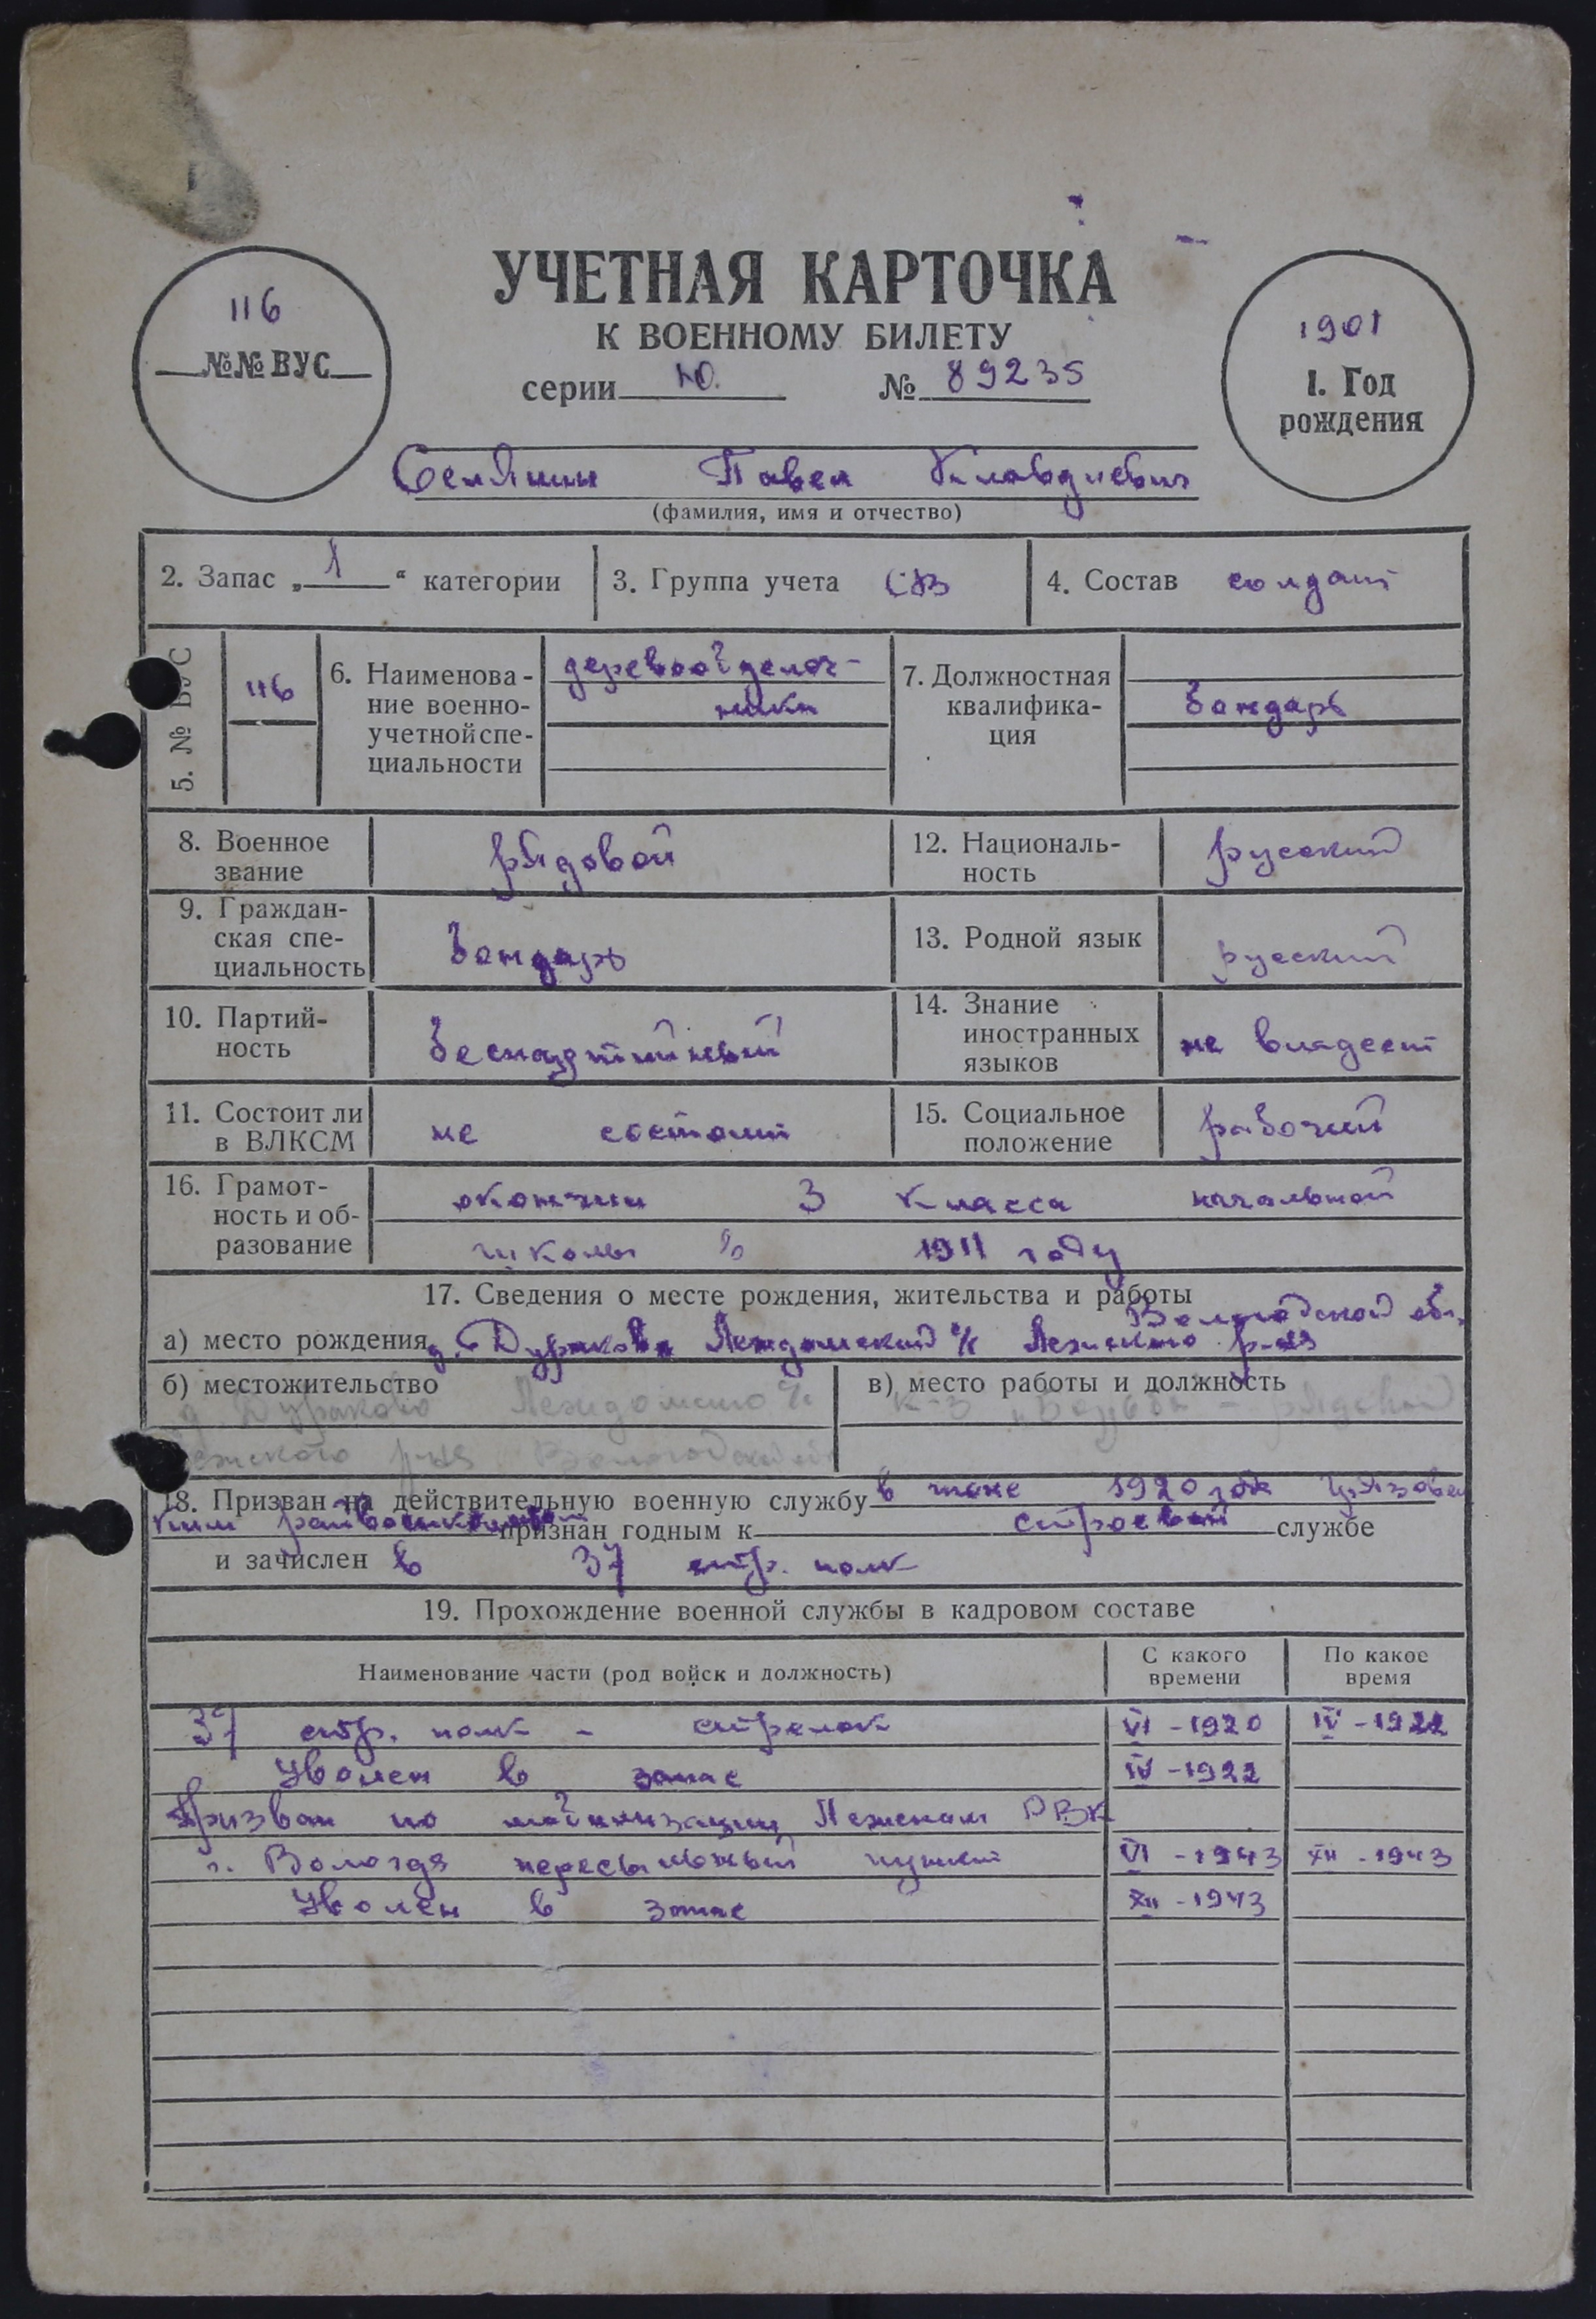 УЧЕТНАЯ КАРТОЧКА
К ВОЕННОМУ БИЛЕТУ
серии Ю. № 89235
116
№№ ВУС
1901
1. Год
рождения
Селянин Павел Клавдиевич
(фамилия, имя и отчество)
2. Запас „1“ категории
3. Группа учета СВ
4. Состав солдат
5. № ВУС
116
6. Наименова-
ние военно-
учетной спе-
циальности
деревообделоч-
ники
7. Должностная
квалифика-
ция
бондарь
8. Военное
звание
рядовой
12. Националь-
ность
русский
9. Граждан-
ская спе-
циальность
бондарь
13. Родной язык
русский
10. Партий-
ность
беспартийный
14. Знание
иностранных
языков
не владеет
11. Состоит ли
в ВЛКСМ
не состоит
15. Социальное
положение
рабочий
16. Грамот-
ность и об-
разование
окончил 3 класса начальной
школы в 1911 году
17. Сведения о месте рождения, жительства и работы
Вологодской обл.
а) место рождения д. Дураково Леждомский с/с Лежского р-на
б) местожительство
д. Дураково Леждомского с/с
Лежского р-на Вологодской
в) место работы и должность
к-з - рядовой
18. Призван на действительную военную службу в июне 1920 года Грязовец
ким райвоенкоматом признан годным к строевой службе
и зачислен в 37 стр. полк
19. Прохождение военной службы в кадровом составе
Наименование части (род войск и должность)
С какого
времени
По какое
время
37 стр. полк - стрелок VI - 1920 IV - 1922
Уволен в запас IV - 1922
Призван по мобилизации Лежским РВК
г. Вологда пересыльный пункт VI - 1943 XII - 1943
Уволен в запас XII - 1943